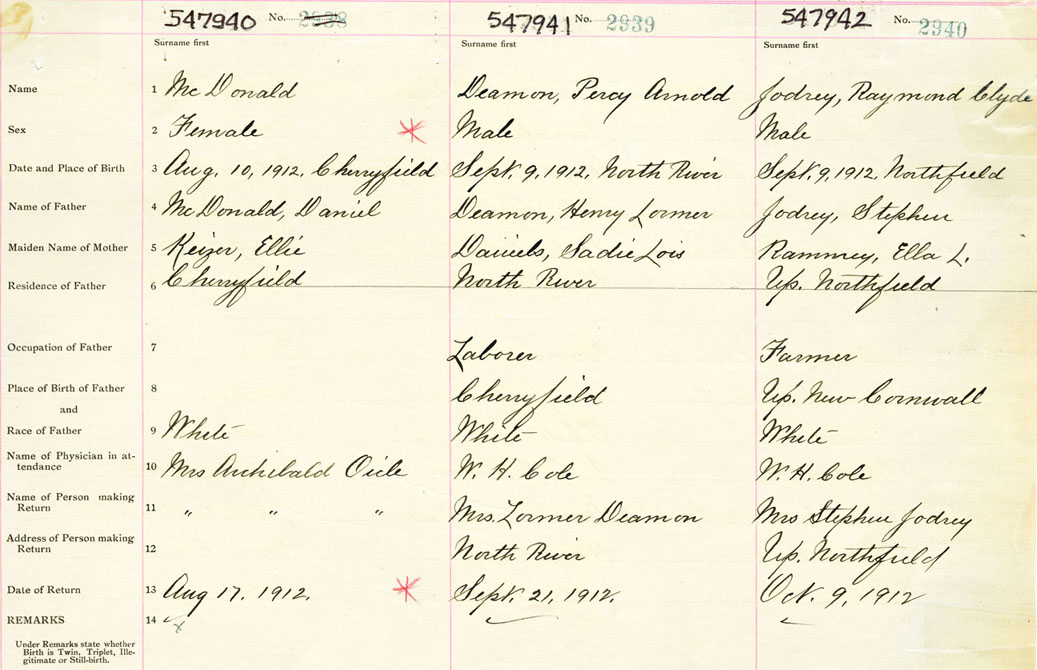 547940 No. 2938 547941 No. 2939 547942 No. 2340
Surname first Surname first Surname first
Name 1 McDonald Deamon, Percy Arnold Jodrey, Raymond Clyde
Sex 2 Female Male Male
Date and Place of Birth 3 Aug. 10, 1912, Cherryfield Sept. 9, 1912, North River Sept. 9, 1912, Northfield
Name of Father 4 McDonald, Daniel Deamon, Henry Lormer Jodrey, Stephen
Maiden Name of Mother 5 Keizer, Ellie Daniels, Sadie Lois Rammey, Ella L.
Residence of Father 6 Cherryfield North River Up. Northfield
Occupation of Father 7 Laborer Farmer
Place of Birth of Father 8 Cherryfield Up. New Cornwall
and
Race of Father 9 White White White
Name of Physician in at-
tendance 10 Mrs Archibald Oicle W. H. Cole W. H. Cole
Name of Person making
Return 11 " " " Mrs. Lormer Deamon Mrs Stephen Jodrey
Address of Person making
Return 12 North River Up. Northfield
Date of Return 13 Aug 17. 1912. Sept. 21, 1912. Oct. 9, 1912
REMARKS 14
Under Remarks state whether
Birth is Twin, Triplet, Ille-
gitimate or Still-birth.